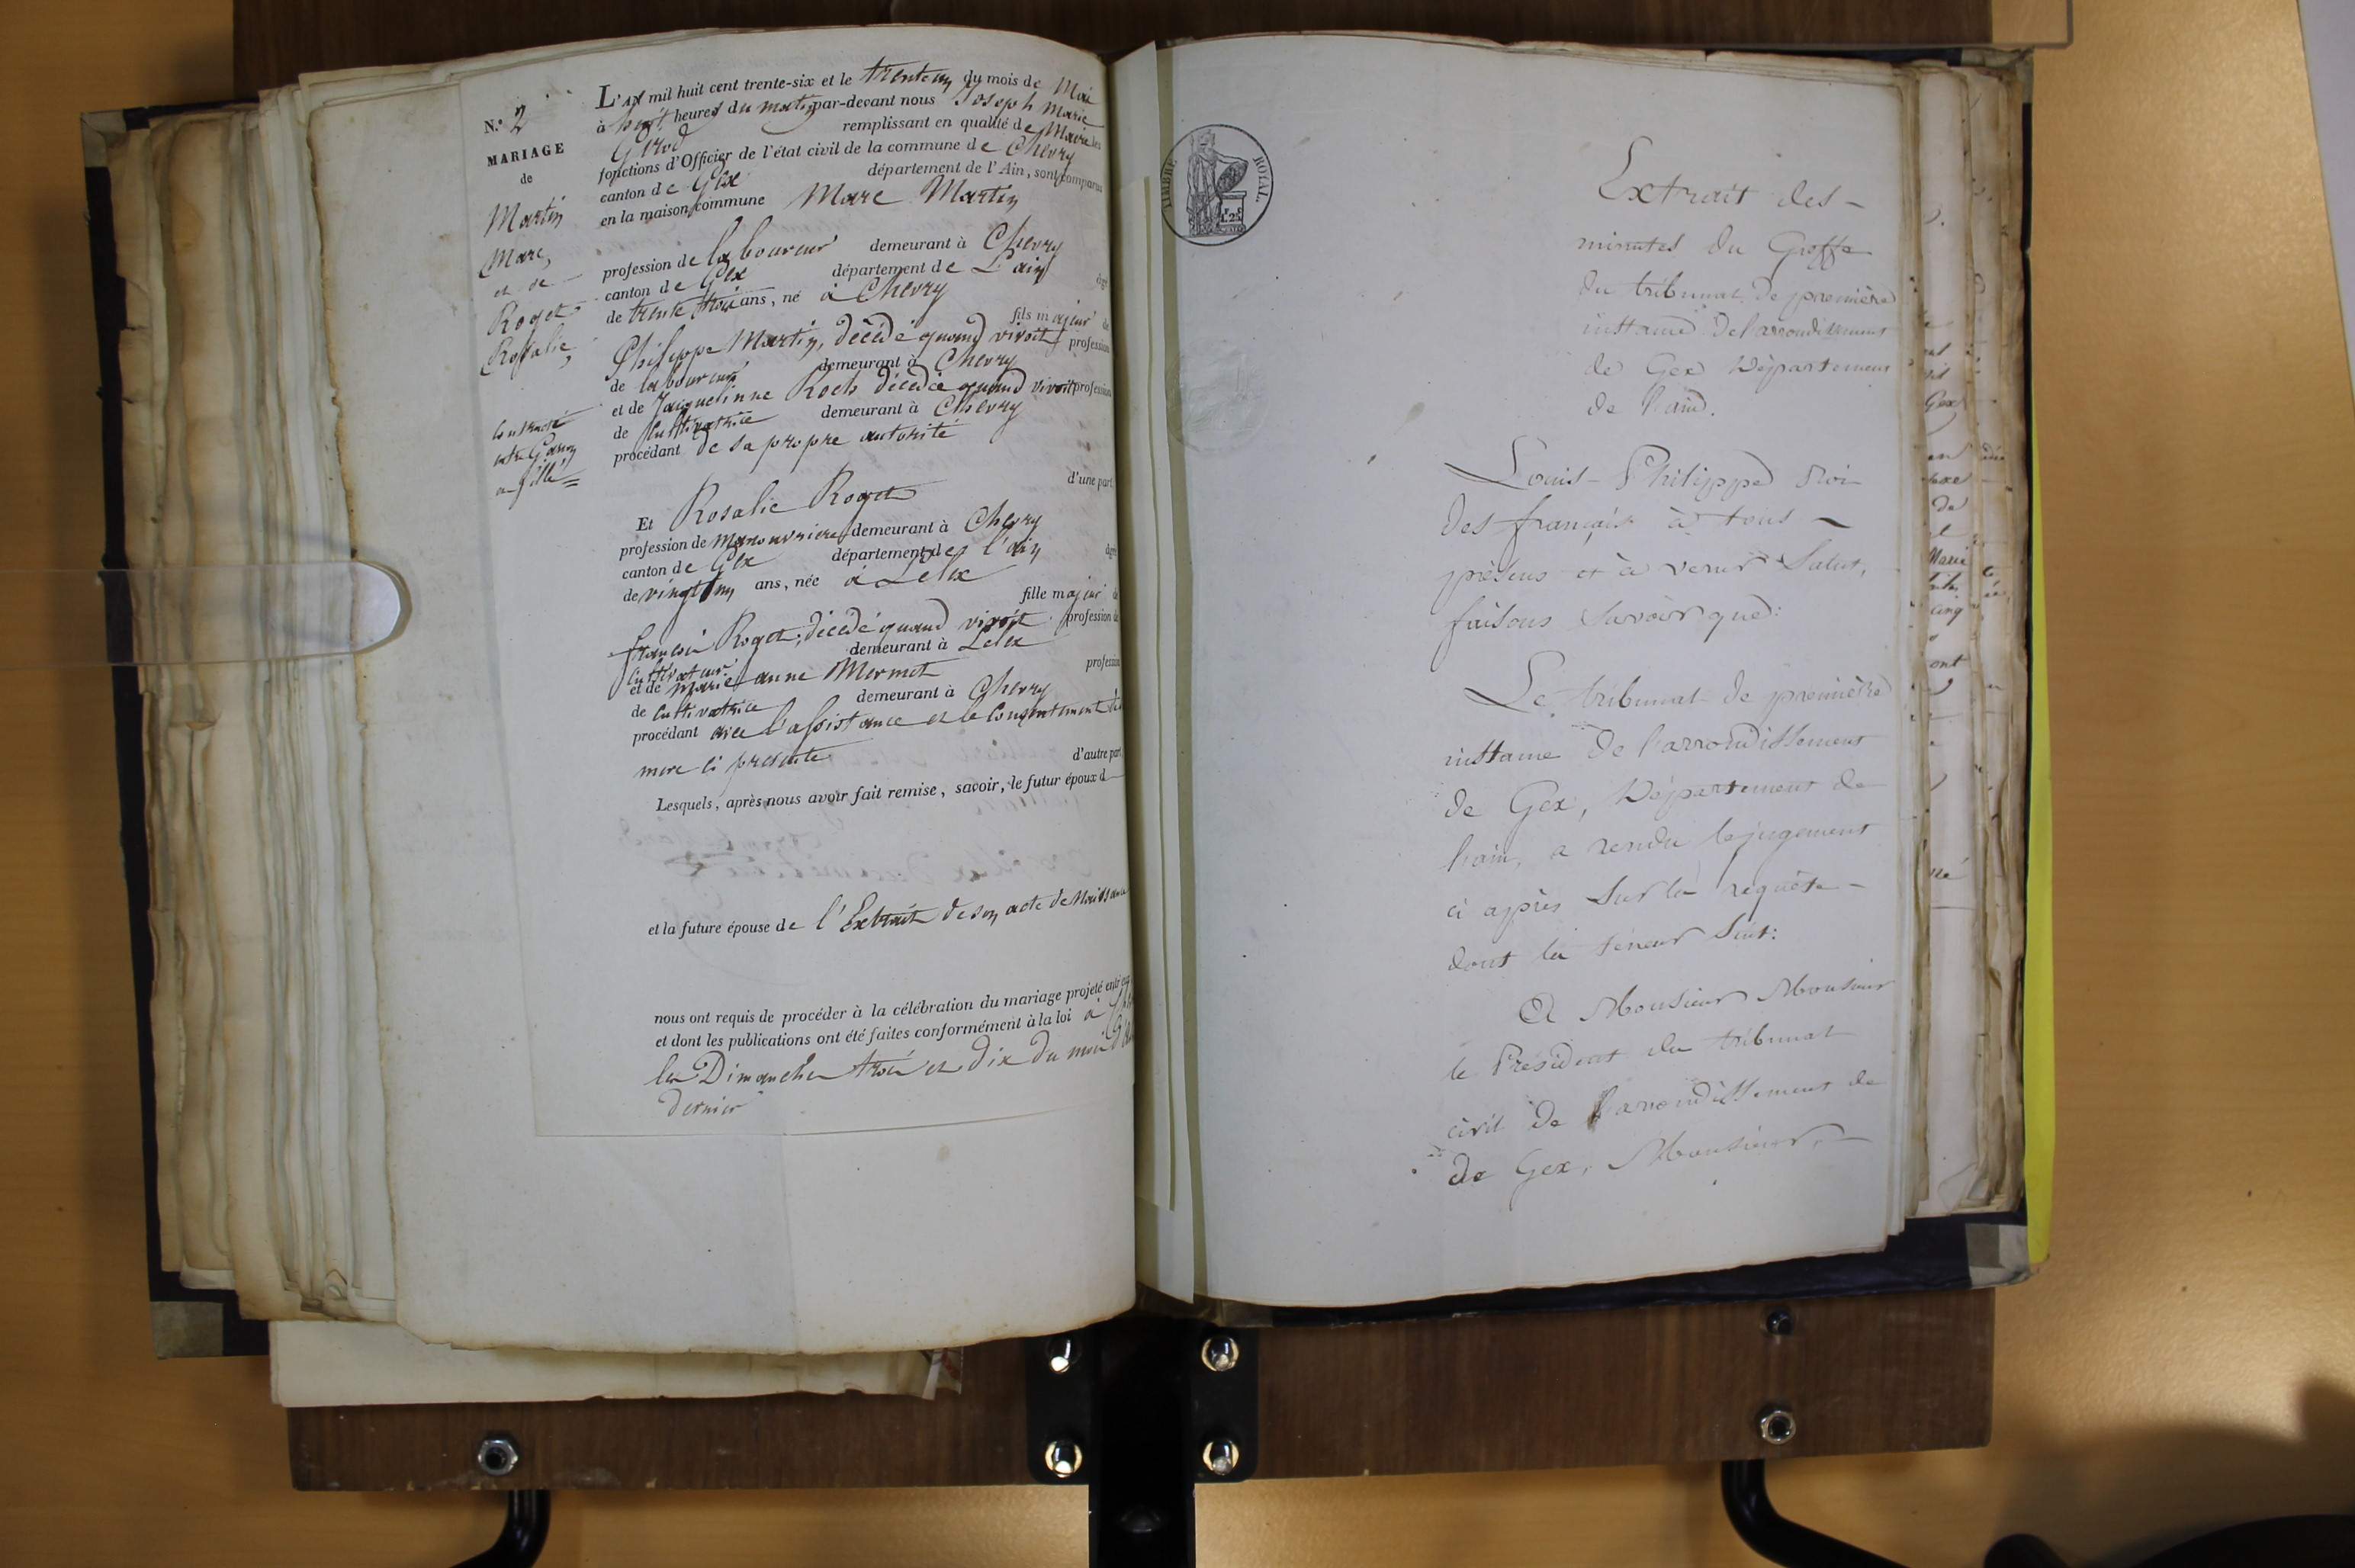 N.º 2
MARIAGE
de
Martin
Marc,
et de
Roget
Rosalie,
contracté
entre Garçon
et fille =
L'an mil huit cent trente-six et le trente un du mois de Mai
à huit heures du matin par-devant nous Joseph Marie
Girod remplissant en qualité de Maire les
fonctions d'Officier de l'état civil de la commune de Chevry
canton de Gex département de l'Ain, sont comparus
en la maison commune Marc Martin
profession de laboureur demeurant à Chevry
canton de Gex département de L'ain âgé
de trente trois ans, né à Chevry
fils majeur de
Philippe Martin, décédé quand vivoit profession
de laboureur demeurant à Chevry
et de Jaiquelinne Roch décédée quand vivoit profession
de Cultivatrice demeurant à Chevry
procédant de sa propre autorité
d'une part
Et Rosalie Roget
profession de manouvriere demeurant à Chevry
canton de Gex département de l'ain âgée
de vingt un ans, née à Lelex
fille majeur de
françois Roget, décédé quand vivoit profession de
Cultivateur demeurant à Lelex
et de Marie anne Mermet profession
de Cultivatrice demeurant à Chevry
procédant avec l'assistance et le Consentement de
mere ci presente
d'autre part
Lesquels, après nous avoir fait remise, savoir, le futur époux d
et la future épouse de l'Extrait de son acte de Naissance
nous ont requis de procéder à la célébration du mariage projeté entr'eux
et dont les publications ont été faites conformément à la loi à
les Dimanches trois et dix du mois d'
dernier
TIMBRE ROYAL
1.25
Extrait des -
minutes du Greffe
du tribunal de première
instance de l'arrondissement
de Gex Département
de l'ain.
Louis-Philippe Roi
des français à tous -
présens et à venir Salut,
faisons Savoir que:
Le tribunal de première
instance de l'arrondissement
de Gex, Département de
l'ain, a rendu le jugement
ci après Sur la requête -
dont la teneur Suit:
A Monsieur Monsieur
le Président du tribunal
civil de l'arrondissement de
de Gex, Monsieur, -
Gex
en
de
Marie
cinq
ont